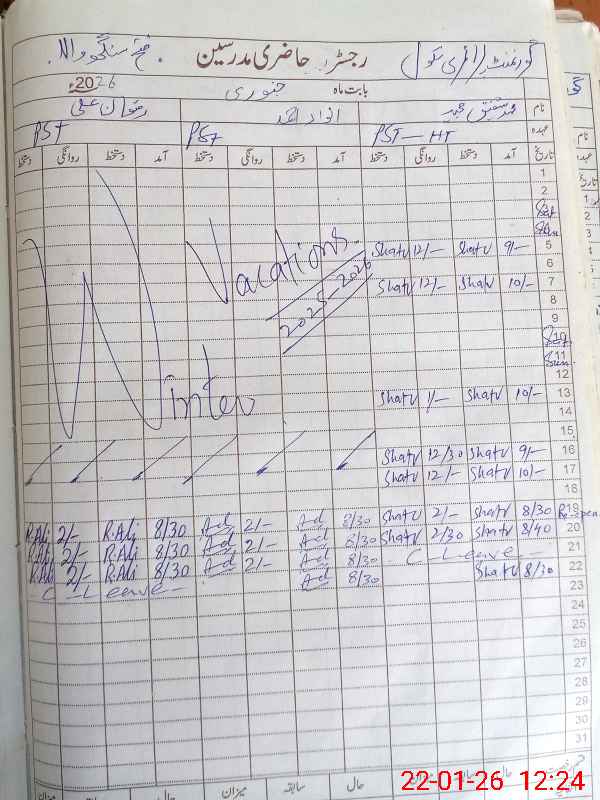 گورنمنٹ (ا ئمری سکول) رجسٹر حاضری مدرسین فتح سنگھ والا
بابت ماہ جنوری 2026ء
نام محمد شفیق انوار احمد رضوان علی
عہدہ PST-HT PST PST
تاریخ آمد دستخط روانگی دستخط آمد دستخط روانگی دستخط آمد دستخط روانگی دستخط
1
2
Sat
Sun
5 9/- Shafv 12/- Shafv
6
7 10/- Shafv 12/- Shafv
8
9
Sat
11 Sun
12
13 10/- Shafv 1/- Shafv
14
15
16 9/- Shafv 12/30 Shafv
17 10/- Shafv 12/- Shafv
18
19 8/30 Shafv 2/- Shafv 8/30 Ad 2/- Ad 8/30 R.Ali 2/- R.Ali
20 8/40 Shafv 2/30 Shafv 8/30 Ad 2/- Ad 8/30 R.Ali 2/- R.Ali
21 C Leave - 8/30 Ad 2/- Ad 8/30 R.Ali 2/- R.Ali
22 8/30 Shafv 8/30 Ad C Leave -
23
24
25
26
27
28
29
30
31
Winter Vacations.
2025-2026
حال سابقہ میزان حال
22-01-26 12:24